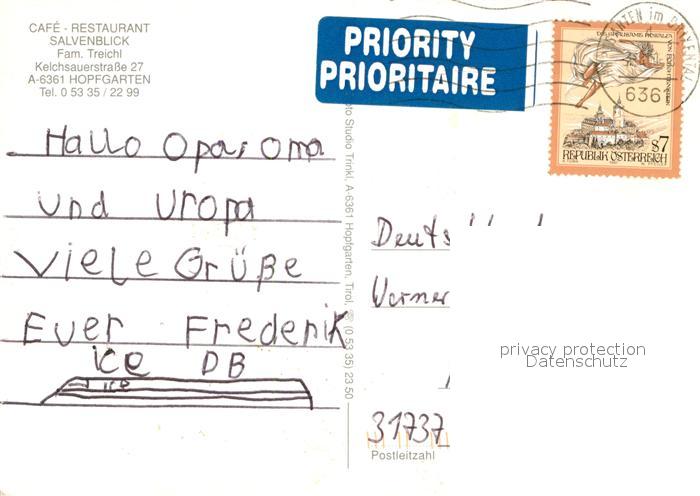 CAFÉ - RESTAURANT
SALVENBLICK
Fam. Treichl
Kelchsauerstraße 27
A-6361 HOPFGARTEN
Tel. 0 53 35 / 22 99
PRIORITY
PRIORITAIRE
636
S7
REPUBLIK ÖSTERREICH
Hallo Opa, Oma
und Uropa
Viele Grüße
Euer Frederik
ICE DB
ICE
Foto Studio Trinkl, A-6361 Hopfgarten, Tirol, (0 53 35) 23 50
Werner
31737
Postleitzahl
privacy protection
Datenschutz